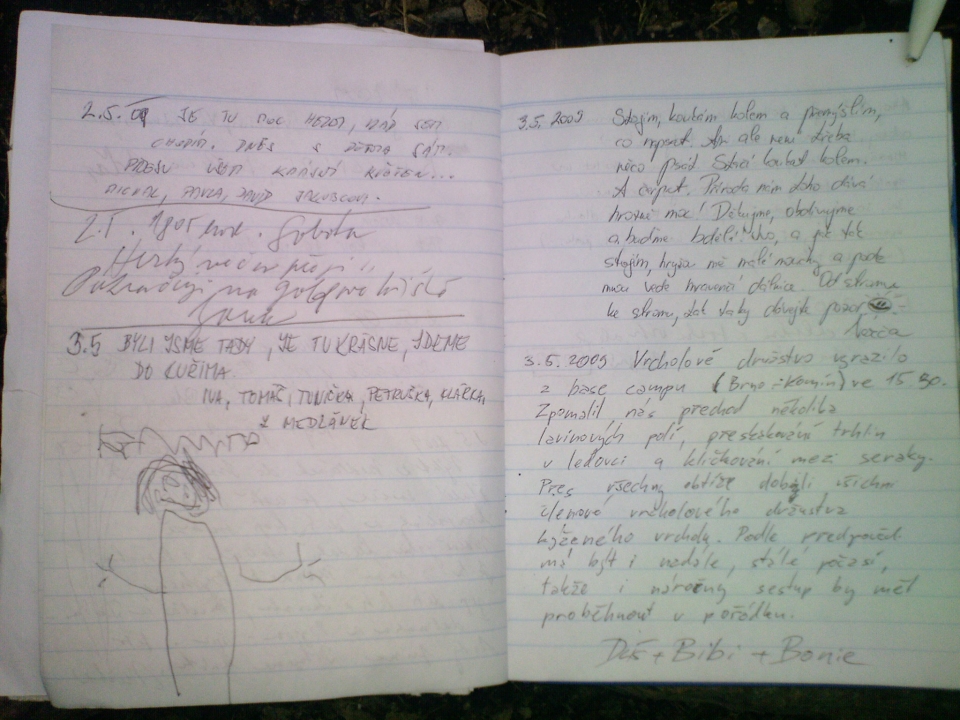 2.5.09 JE TU MOC HEZKY, RÁD SEM
CHODÍM. DNES S SÁM.
KRÁSNÝ
MICHAL, PAVLA, DAVID
2.5. 1805 hod. Sobota
Hezký večer přeji
Pokračuji na
3.5 BYLI JSME TADY, JE TU KRÁSNE, JDEME
DO KUŘIMA.
IVA, TOMÁŠ, TONIČKA, PETRUŠKA, KLÁRKA,
Z MEDLÁNEK
3.5. 2009 Stojím, koukám kolem a přemýšlím,
co napsat. Ale není třeba
něco psát. Stačí koukat kolem.
A čerpat. Příroda nám toho dává
hrozně moc! Děkujme, obdivujme
a buďme bdělí! a jak tak
stojím, hryžou mě malé mouchy a pode
mnou vede mravenčí dálnice. Od stromu
ke stromu, tak taky dávejte pozor
3.5.2009 Vrcholové družstvo vyrazilo
z base campu (Brno-Komín) ve 15 30.
Zpomalil nás přechod několika
lavinových polí, přeskakování trhlin
v ledovci a kličkování mezi seraky.
Přes všechny obtíže dobyli všichni
členové vrcholového družstva
kýženého vrcholu. Podle předpovědi
má být i nadále, stálé počasí,
takže i náročný sestup by měl
proběhnout v pořádku.
+ Bibi + Bonie